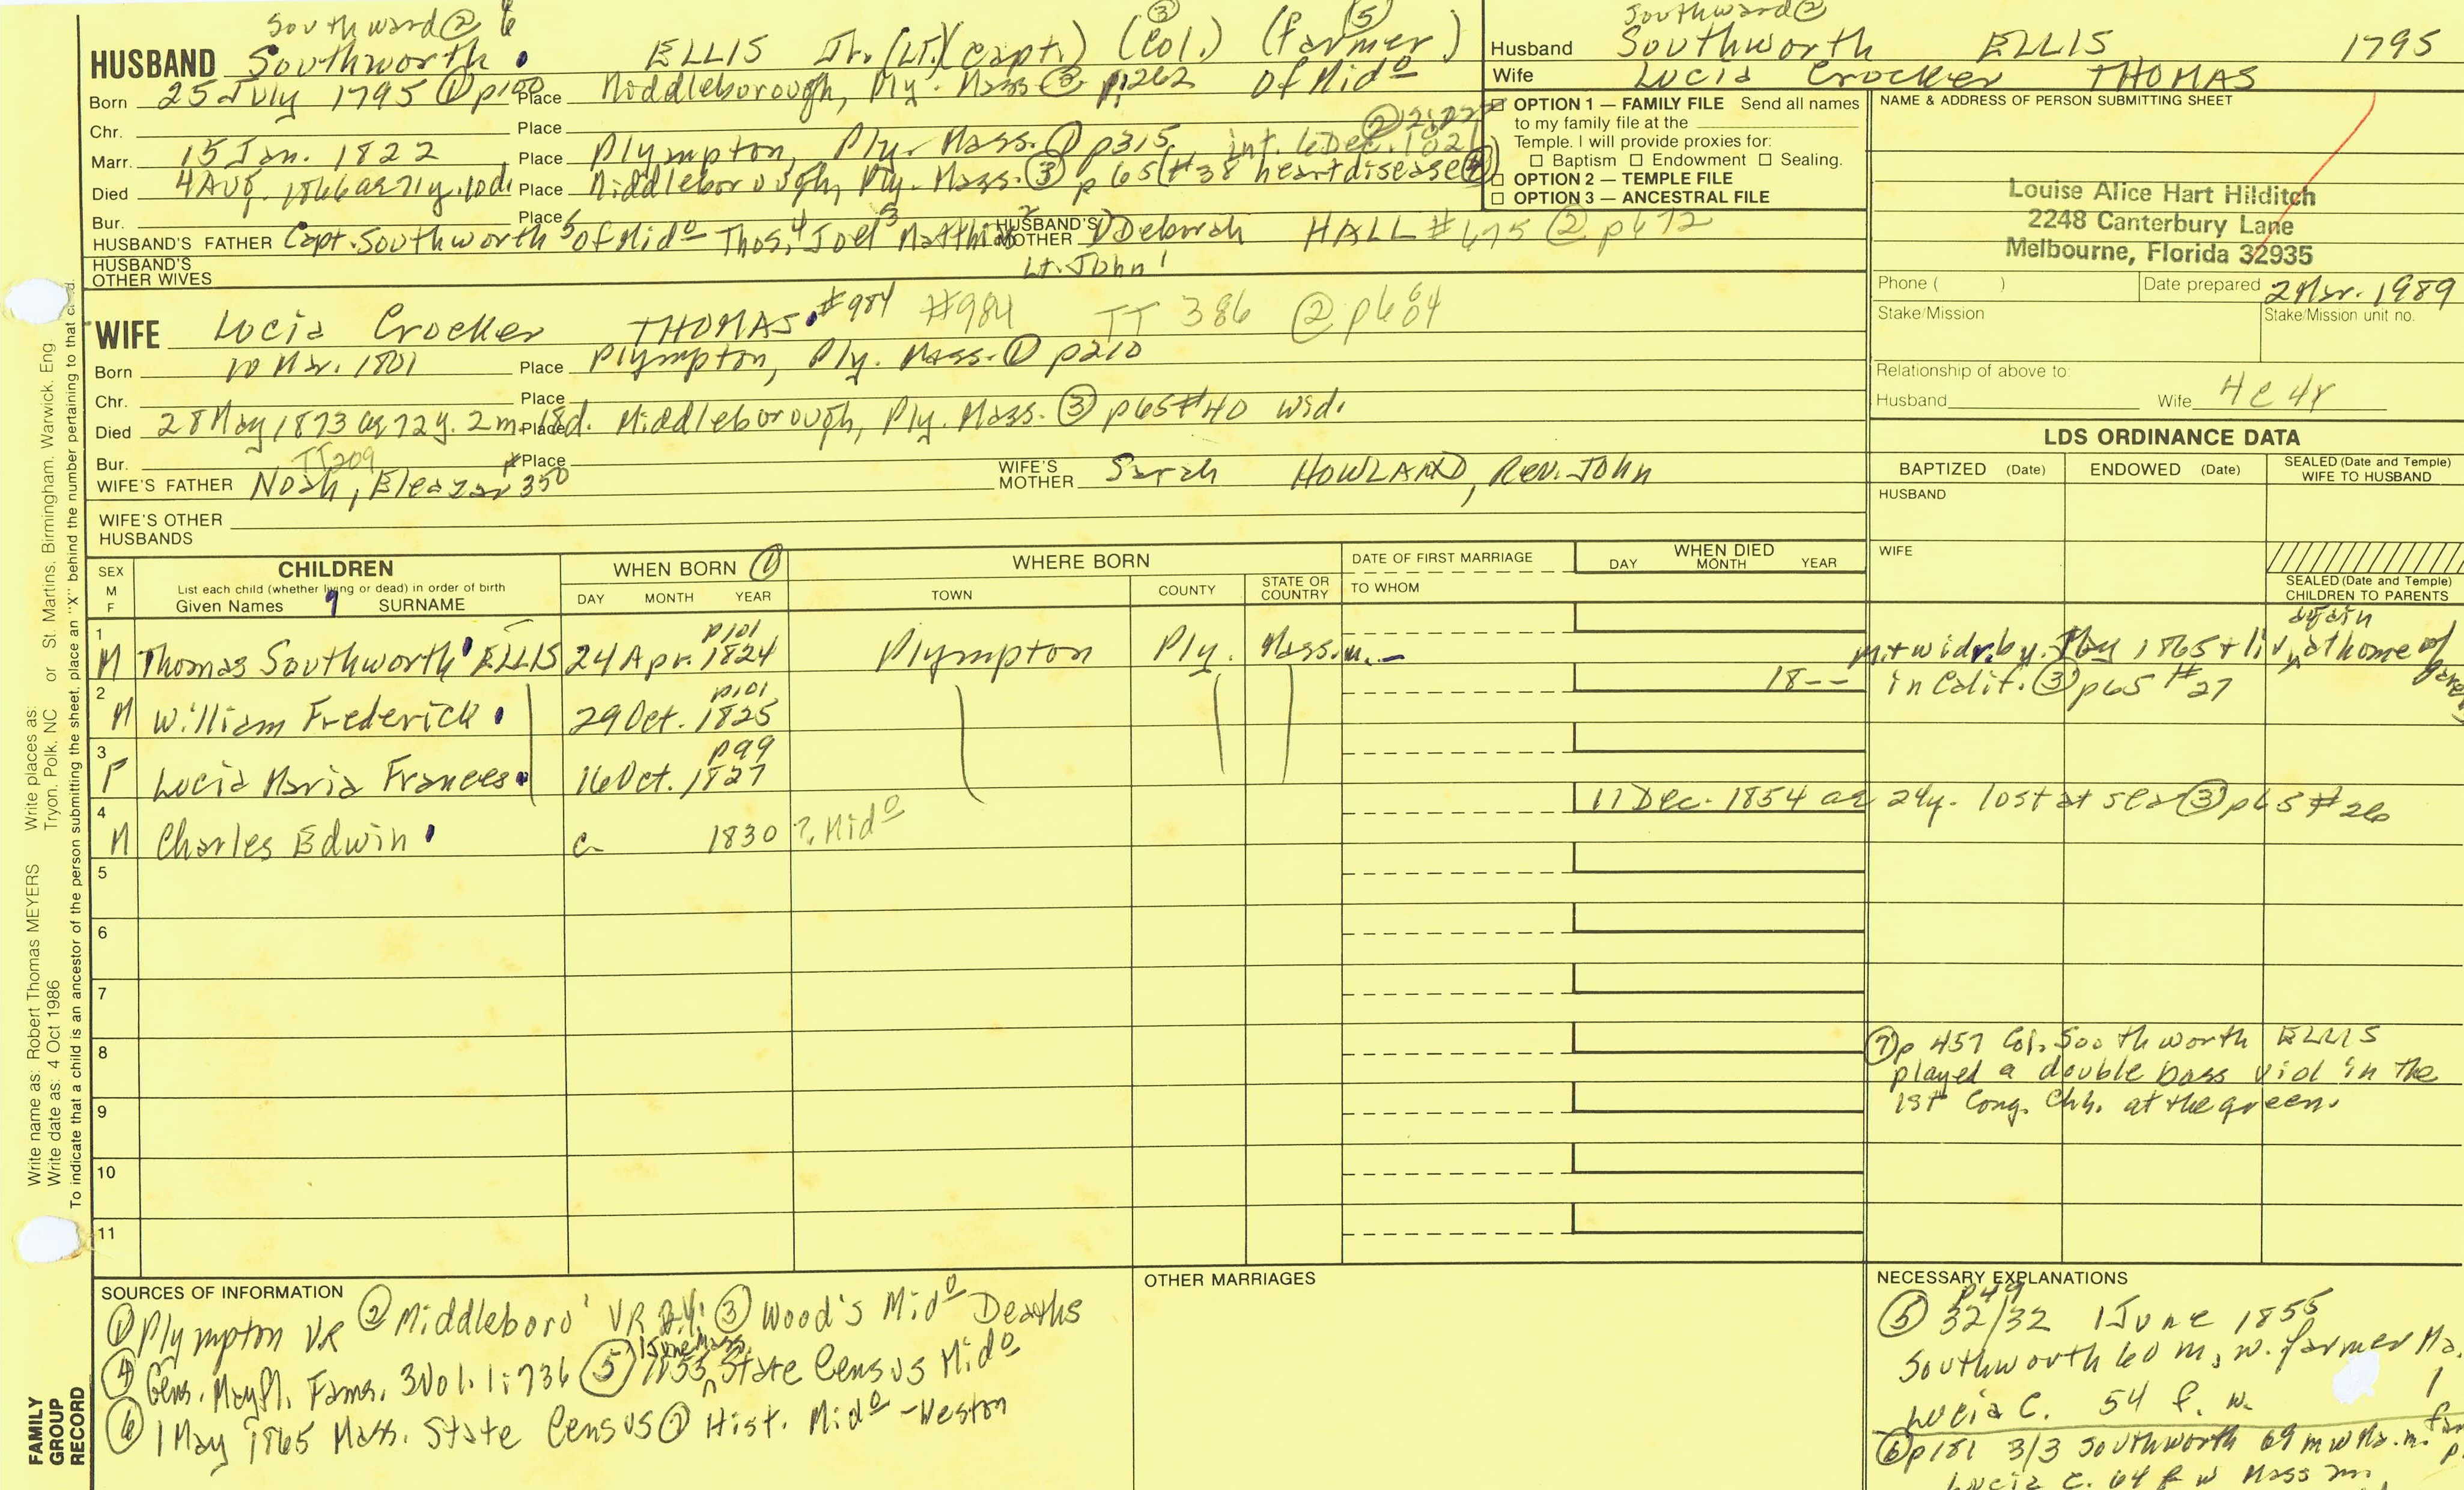 Southward ② 6
HUSBAND Southworth ELLIS Jr. (Lt.) (Capt.) (Col.) ③ (farmer) ⑤
Born 25 July 1795 ① p100 Place Middleborough, Ply. Mass. ② p1:262 of Mido
Chr. Place
Marr. 15 Jan. 1822 Place Plympton, Ply. Mass. ① p315 int. 6 Dec. 1821
Died 4 Aug. 1866 ae 71y. 10d. Place Middleborough, Ply. Mass. ③ p65 (#38 heart disease ④)
Bur. Place
HUSBAND'S FATHER Capt. Southworth 5 of Mido Thos. 4 Joel 3 Matthias 2 HUSBAND'S MOTHER Deborah HALL #675 ② p672
Lt. John 1
HUSBAND'S OTHER WIVES
WIFE Lucia Crocker THOMAS #984 #984 TT 386 ② p684
Born 10 Mar. 1801 Place Plympton, Ply. Mass. ① p210
Chr. Place
Died 28 May 1873 ae 72y. 2m. 18d. Place Middleborough, Ply. Mass. ③ p65 #40 wid.
Bur. TT209 Place
WIFE'S FATHER Noah, Eleazar 350 WIFE'S MOTHER Sarah HOWLAND, Rev. John
WIFE'S OTHER HUSBANDS
Southward ②
Husband Southworth ELLIS 1795
Wife Lucia Crocker THOMAS
OPTION 1 — FAMILY FILE Send all names
to my family file at the
Temple. I will provide proxies for:
☐ Baptism ☐ Endowment ☐ Sealing.
☐ OPTION 2 — TEMPLE FILE
☐ OPTION 3 — ANCESTRAL FILE
NAME & ADDRESS OF PERSON SUBMITTING SHEET
Louise Alice Hart Hilditch
2248 Canterbury Lane
Melbourne, Florida 32935
Phone ( ) Date prepared 2 Mar. 1989
Stake/Mission Stake/Mission unit no.
Relationship of above to:
Husband Wife 4c4r
LDS ORDINANCE DATA
BAPTIZED (Date) ENDOWED (Date) SEALED (Date and Temple) WIFE TO HUSBAND
HUSBAND
WIFE
SEALED (Date and Temple) CHILDREN TO PARENTS
SEX M F CHILDREN
List each child (whether living or dead) in order of birth
Given Names SURNAME
WHEN BORN ①
DAY MONTH YEAR
WHERE BORN
TOWN COUNTY STATE OR COUNTRY
DATE OF FIRST MARRIAGE
TO WHOM
WHEN DIED
DAY MONTH YEAR
1 M Thomas Southworth ELLIS 24 Apr. 1824 p101 Plympton Ply. Mass. m.-- m. + widr. by May 1865 + liv. again at home of
2 M William Frederick 29 Oct. 1825 p101 18-- in Calif. ③ p65 #27
3 F Lucia Maria Frances 16 Oct. 1827 p99
4 M Charles Edwin c 1830 ? Mido 11 Dec. 1854 ae 24y. lost at sea ③ p65 #26
5
6
7
8
9
10
11
⑦ p 457 Col. Southworth ELLIS
played a double bass viol in the
1st Cong. Chh. at the green.
SOURCES OF INFORMATION
① Plympton VR ② Middleboro' VR ③ Wood's Mido Deaths
④ Gens. Mayfl. Fams. 3 Vol. 1:736 ⑤ 1 June 1855 Mass. State Census Mido
⑥ 1 May 1865 Mass. State Census ⑦ Hist. Mido - Weston
OTHER MARRIAGES
NECESSARY EXPLANATIONS
p49
⑤ 32/32 1 June 1855
Southworth 60 m. w. farmer Ma.
Lucia C. 54 f. w.
⑥ p181 3/3 Southworth 69 m w Ma. m.
Lucia C. 64 f w Mass m.
Write name as: Robert Thomas MEYERS Write places as: Tryon, Polk, NC or St. Martins, Birmingham, Warwick, Eng.
Write date as: 4 Oct 1986
To indicate that a child is an ancestor of the person submitting the sheet, place an "X" behind the number pertaining to that child.
FAMILY
GROUP
RECORD